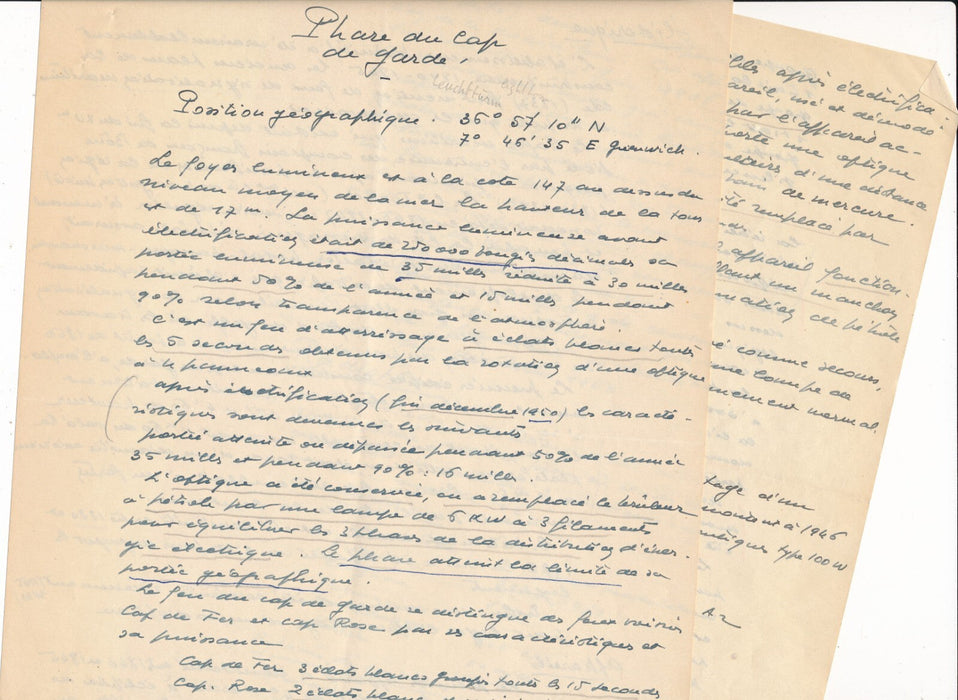 Phare du Cap
de Garde
Leuchtturm
Position géographique : 36° 57 10" N
7° 46' 35 E grenwich.
Le foyer lumineux est à la cote 147 au dessus du
niveau moyen de la mer la hauteur de la tour
est de 17 m. La puissance lumineuse avant
électrification était de 250 000 bougies décimales sa
portée lumineuse de 35 milles réduite à 30 milles
pendant 50 % de l'année et 15 milles pendant
90 % selon transparence de l'atmosphère.
C'est un feu d'atterrissage à éclats blancs toutes
les 5 secondes obtenus par la rotation d'une optique
à 4 panneaux
après électrification (fin décembre 1950) les caracté-
ristiques sont devenues les suivantes
portée atteinte ou dépassée pendant 50% de l'année
35 milles et pendant 90% : 16 milles.
L'optique a été conservée, on a remplacé le brûleur
à pétrole par une lampe de 6 KW à 3 filaments
pour équilibrer les 3 phases de la distribution d'éner-
gie électrique. Le phare atteint la limite de sa
portée géographique.
Le feu du cap de garde se distingue des feux voisins
Cap de Fer et cap Rose par ses caractéristiques et
sa puissance
Cap de Fer 3 éclats blancs groupés toutes les 15 secondes
Cap. Rose 2 éclats blancs
après électrifica-
areil, usé et démodé
par l'appareil ac-
porte une optique
d'une distance
de mercure
été remplacé par
appareil fonction-
un manchon
de pétrole
é comme secours,
une lampe de
nement normal.
tage d'un
montent à 1946
type 100 W